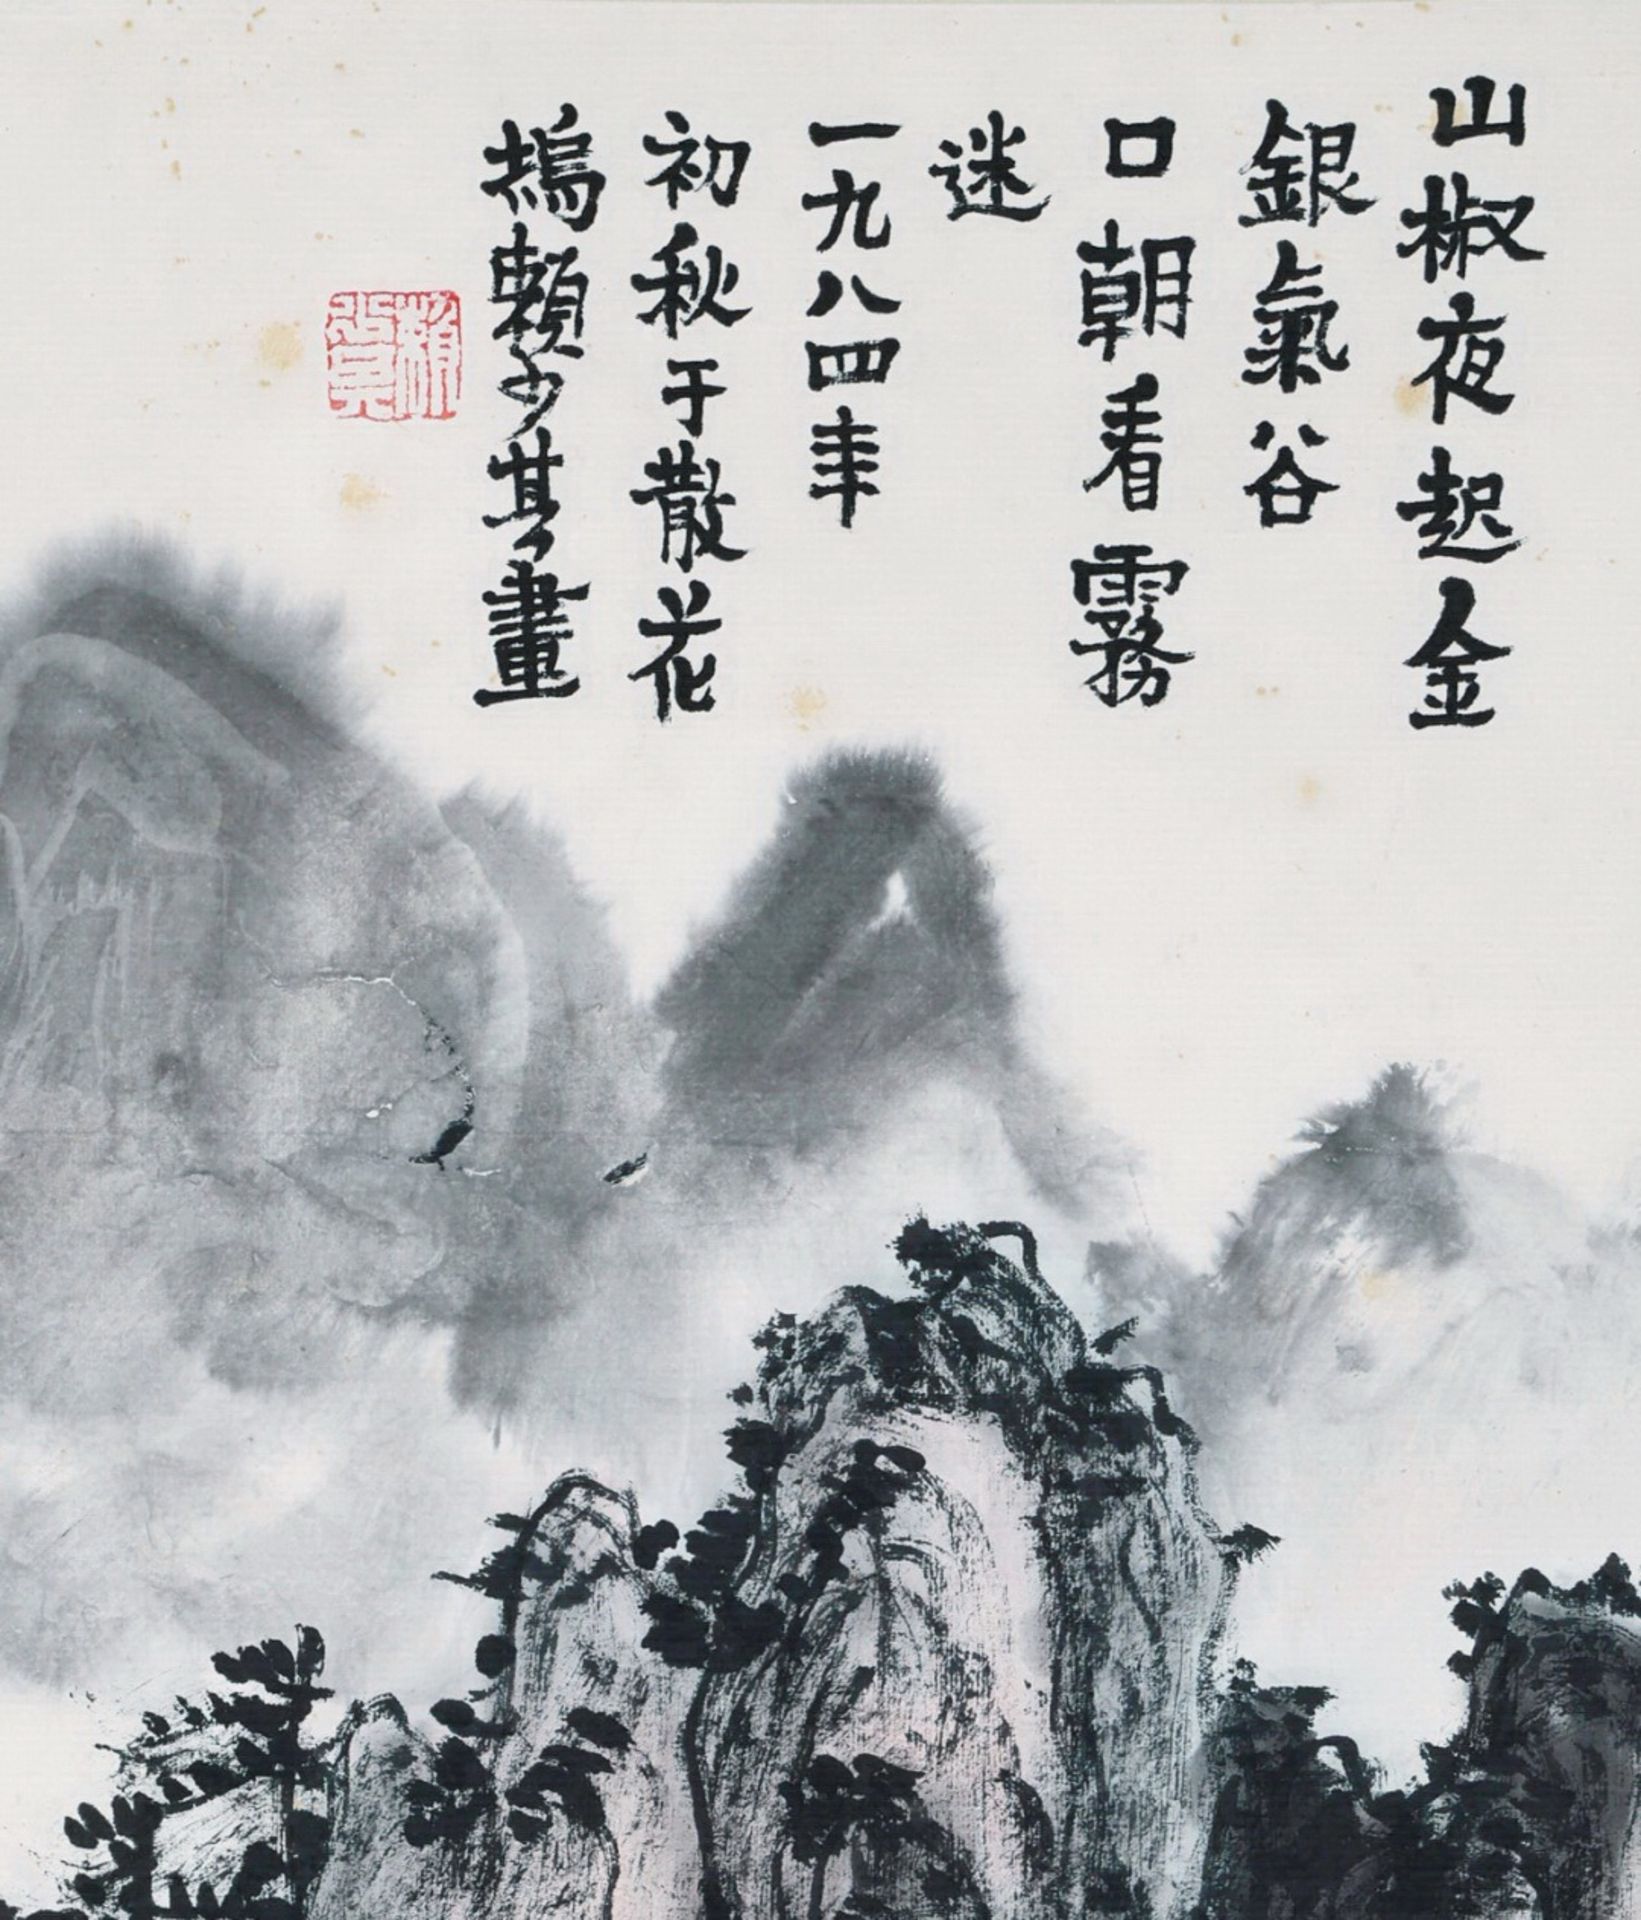 山椒夜起金
銀氣谷
口朝看霧
迷
一九八四年
初秋于散花
塢賴少其畫
賴少其